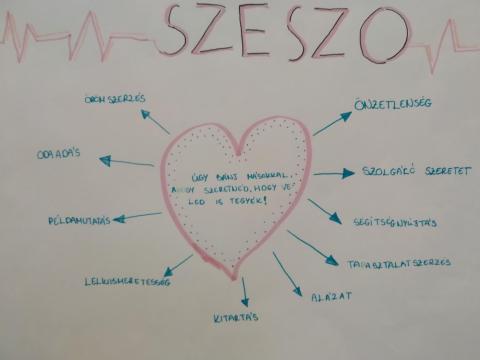 SZESZO
ÖRÖMSZERZÉS
ODAADÁS
PÉLDAMUTATÁS
LELKIISMERETESSÉG
KITARTÁS
ÚGY BÁNJ MÁSOKKAL,
AHOGY SZERETNÉD, HOGY VE-
LED IS TEGYÉK!
ÖNZETLENSÉG
SZOLGÁLÓ SZERETET
SEGÍTSÉGNYÚJTÁS
TAPASZTALATSZERZÉS
ALÁZAT